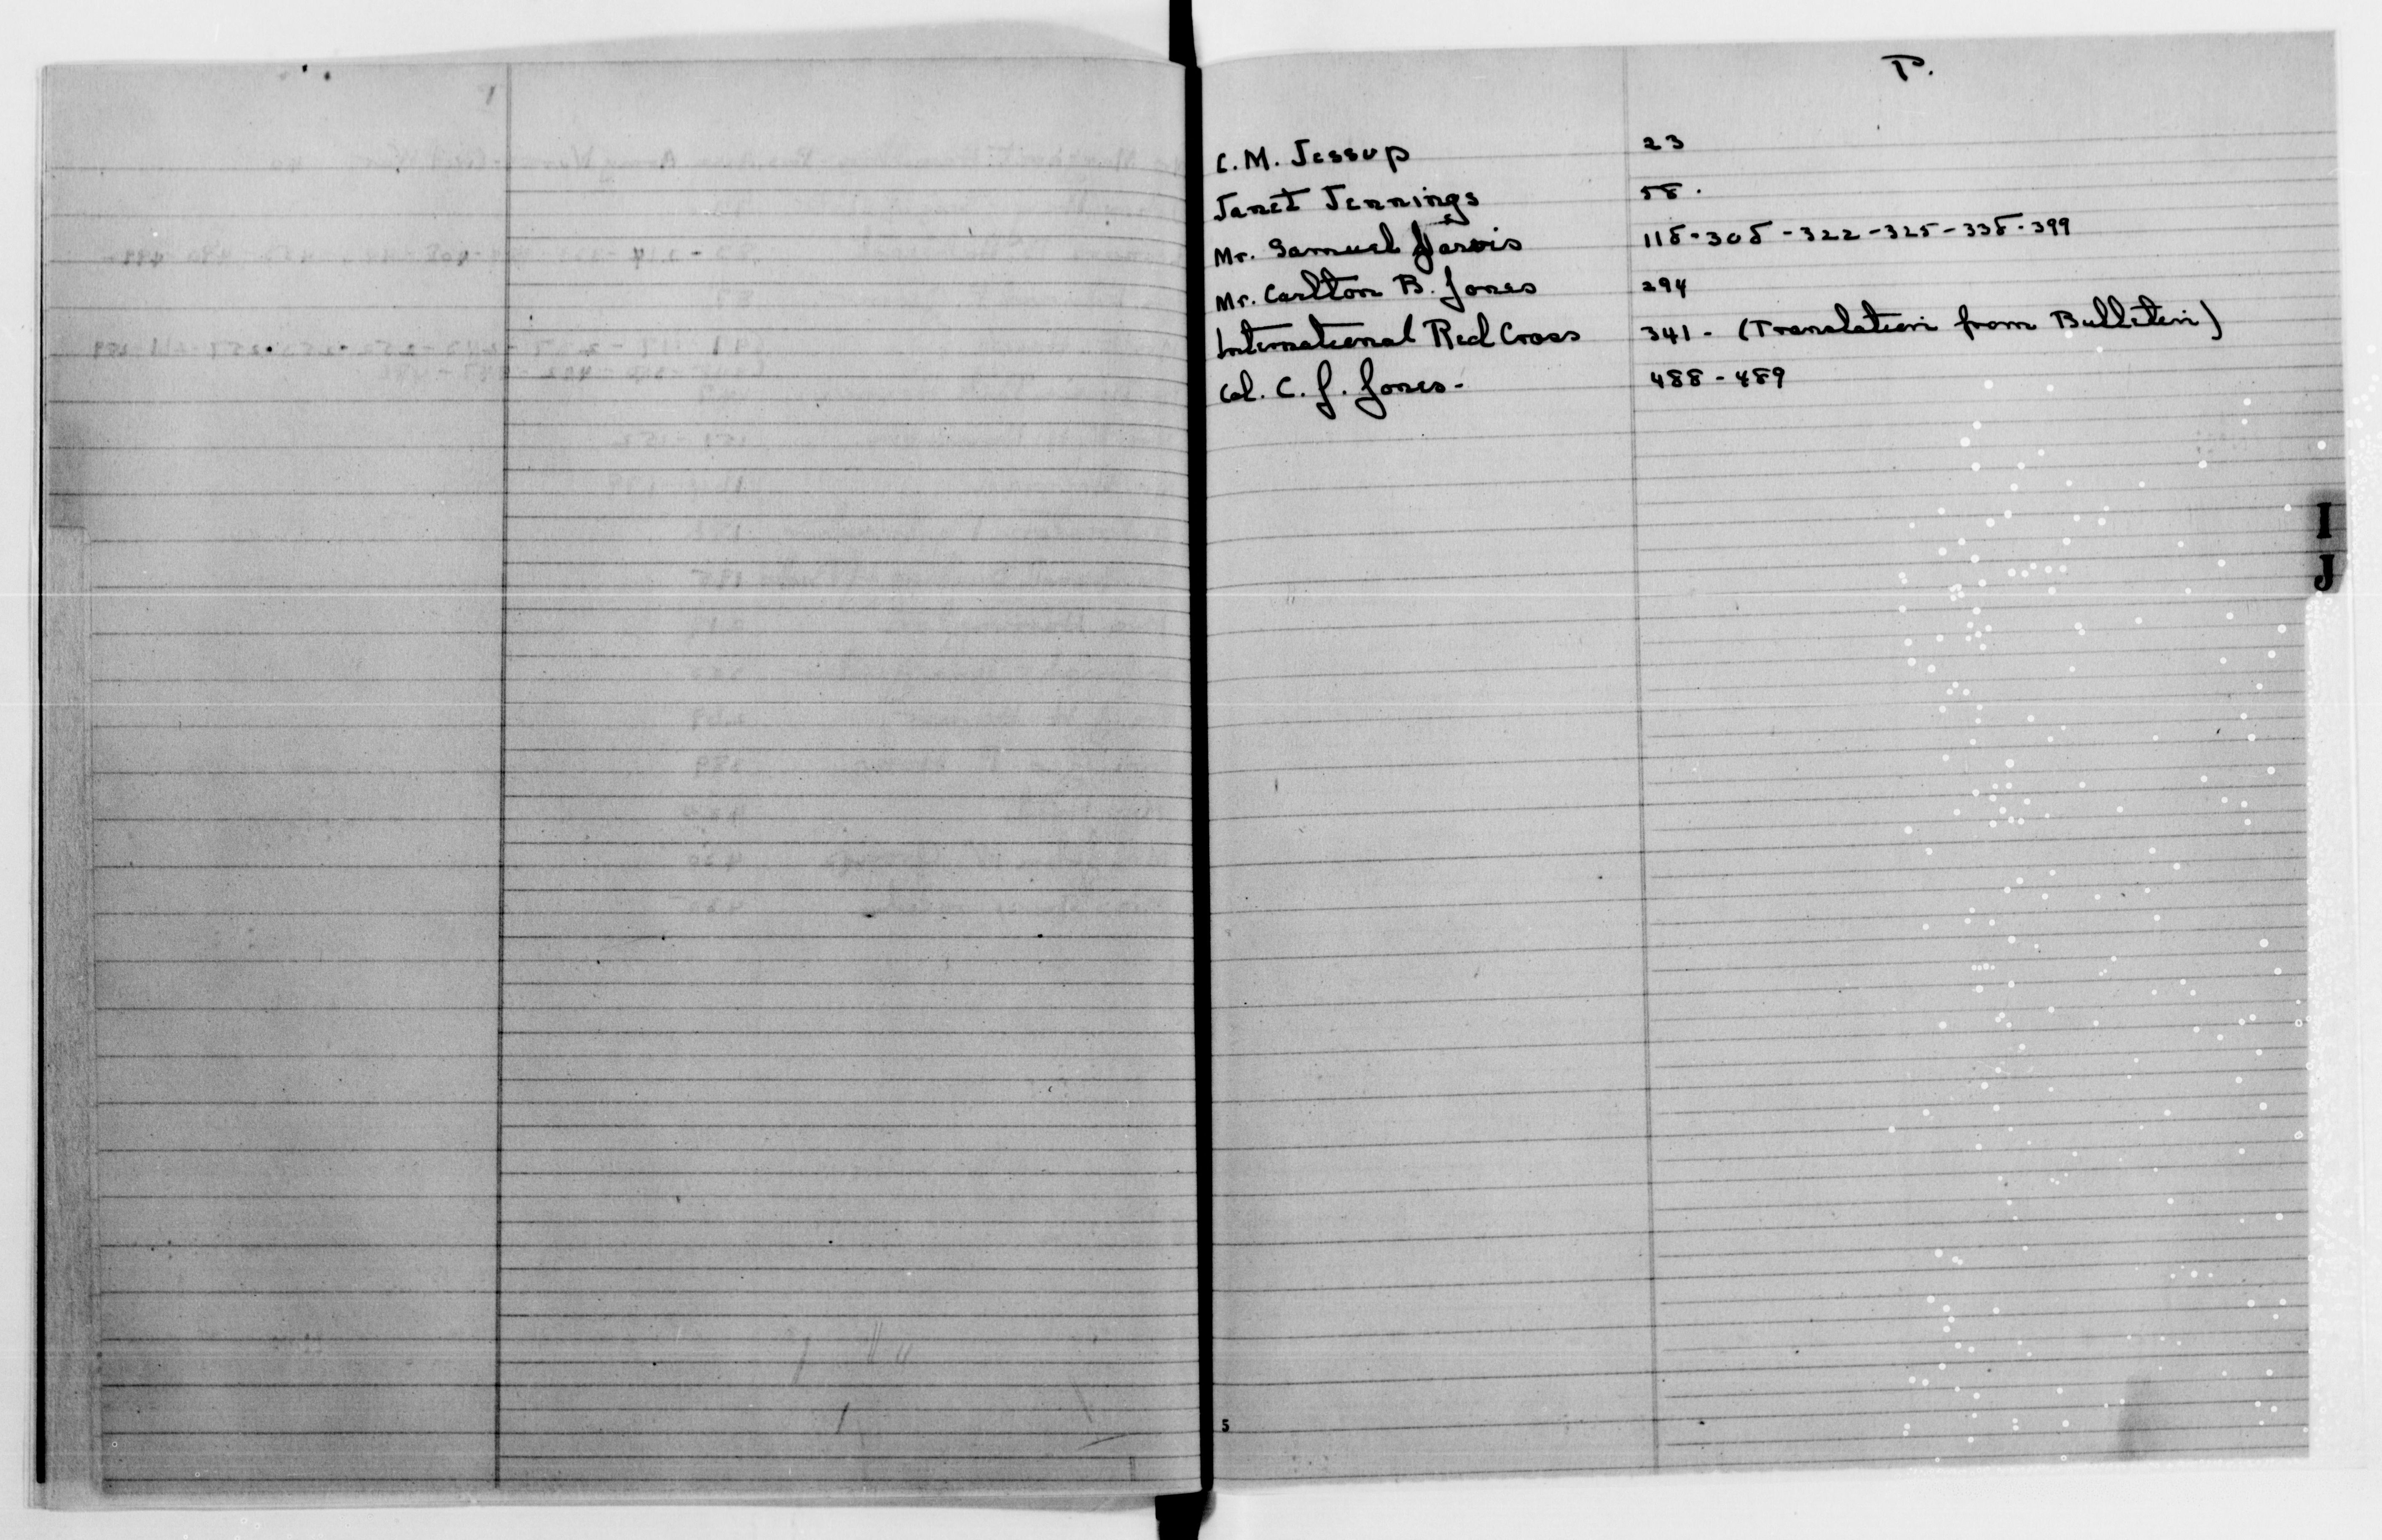 P.
C. M. Jessup 23
Janet Jennings 58.
Mr. Samuel Jarvis 118-308-322-325-338-399
Mr. Carlton B. Jones 294
International Red Cross 341- (Translation from Bulletin)
Col. C. J. Jones- 488-489
I
J
5